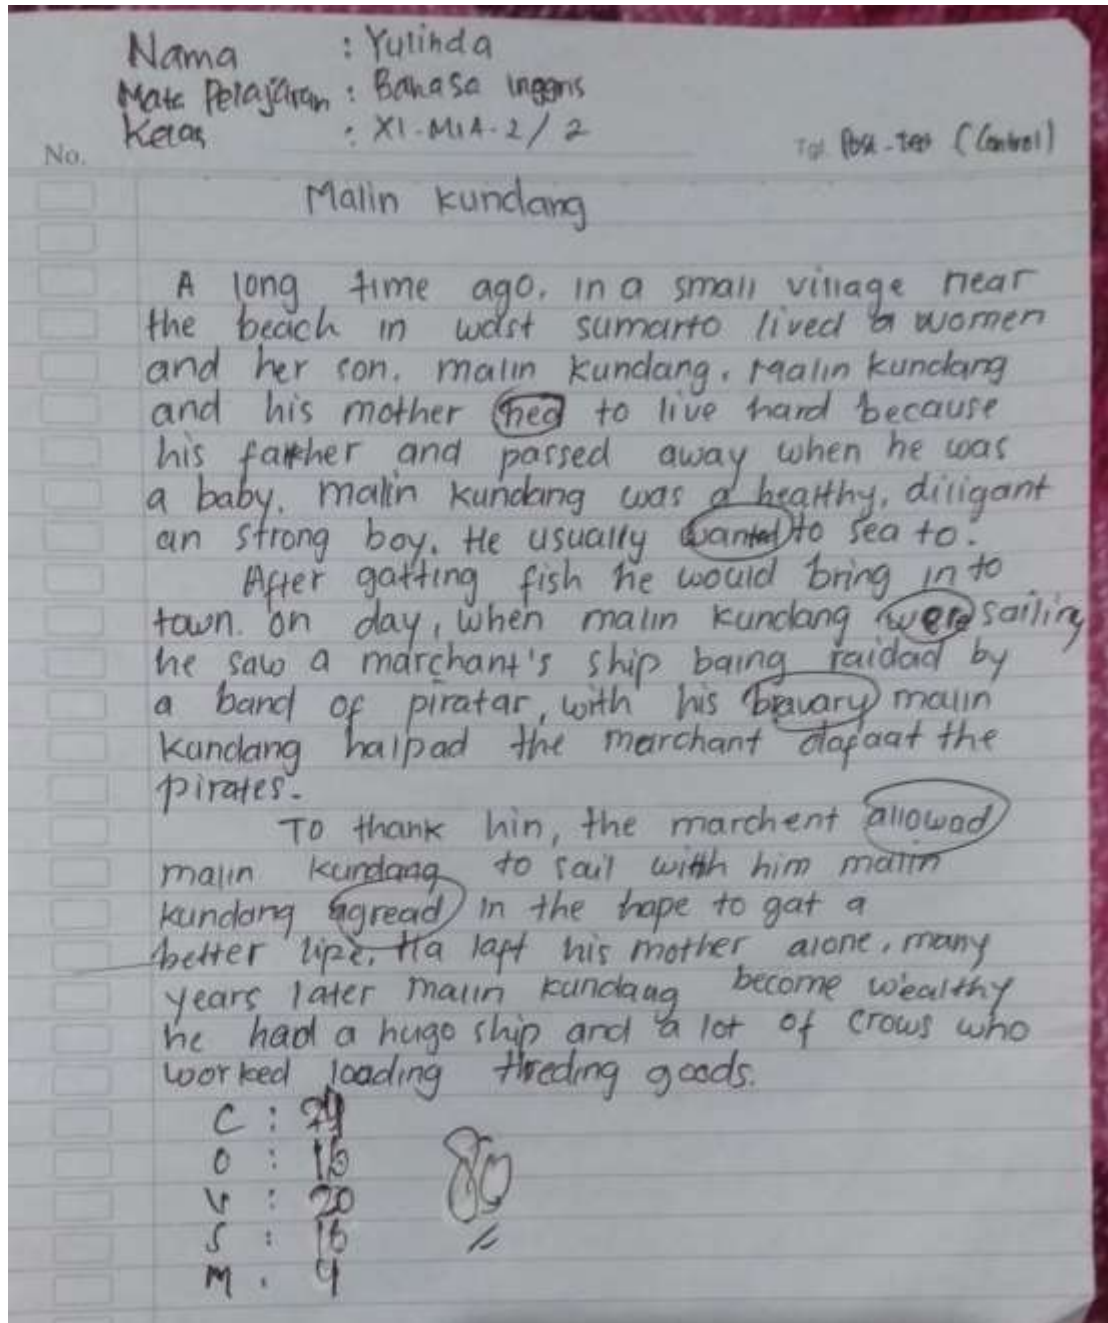 Nama : Yulinda
Mata Pelajaran : Bahasa inggris
Kelas : XI-MIA-2/2
No. Tgl. Post-Test (Control)
Malin kundang
A long time ago. in a small village near
the beach in wdst sumarto lived a women
and her son. malin kundang. Malin kundang
and his mother hed to live hard because
his father and passed away when he was
a baby. malin kundang was a healthy, diligant
an strong boy. He usually wanted to sea to.
After gatting fish he would bring in to
town. on day, when malin kundang were sailing
he saw a marchant's ship baing raidad by
a band of piratar, with his bravary malin
kundang halpad the marchant dafaat the
pirates.
To thank hin, the marchent allowad
malin kundang to sail with him malin
kundang agread in the hape to gat a
better lipe. Ha laft his mother alone. many
years later malin kundang become wealthy
he had a hugo ship and a lot of crows who
worked loading threding goods.
C :
O : 16
V : 20
S : 16
M : 4
80